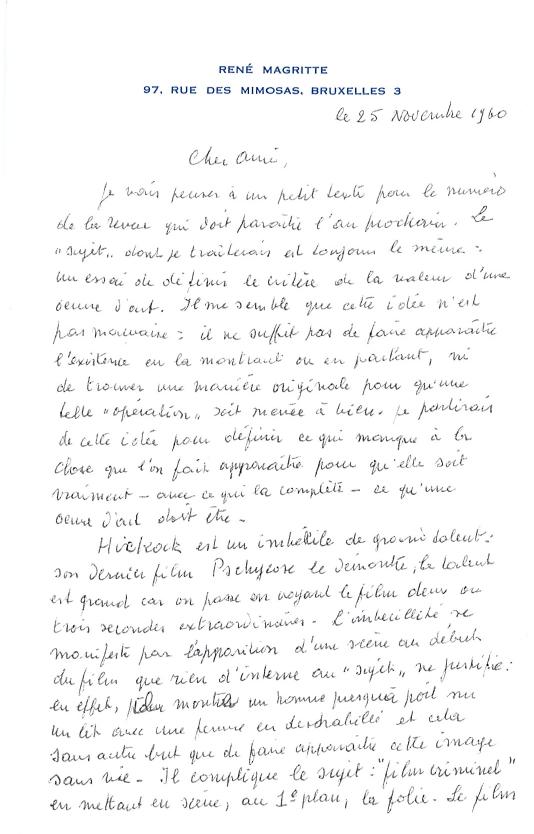 RENÉ MAGRITTE
97, RUE DES MIMOSAS, BRUXELLES 3
le 25 Novembre 1960
Cher Ami,
Je vais penser à un petit texte pour le numéro
de la revue qui doit paraître l'an prochain. Le
"sujet" dont je traiterais est toujours le même :
un essai de définir le critère de la valeur d'une
oeuvre d'art. Il me semble que cette idée n'est
pas mauvaise : il ne suffit pas de faire apparaître
l'existence en la montrant ou en partant, ni
de trouver une manière originale pour qu'une
telle "opération" soit menée à bien. Je partirais
de cette idée pour définir ce qui manque à la
chose que l'on fait apparaître pour qu'elle soit
vraiment – avec ce qui la complète – ce qu'une
oeuvre d'art doit être.
est un imbécile de grand talent :
son dernier film le démontre, le talent
est grand car on passe en voyant le film deux ou
trois secondes extraordinaires. L'imbécillité se
manifeste par l'apparition d'une scène au début
du film que rien d'interne au "sujet" ne justifie :
en effet, un homme presqu'à poil sur
un lit avec une femme en déshabillé et cela
sans autre but que de faire apparaître cette image
sans vie. Il complique le sujet : "film criminel"
en mettant en scène, au 1e plan, la folie. Le film